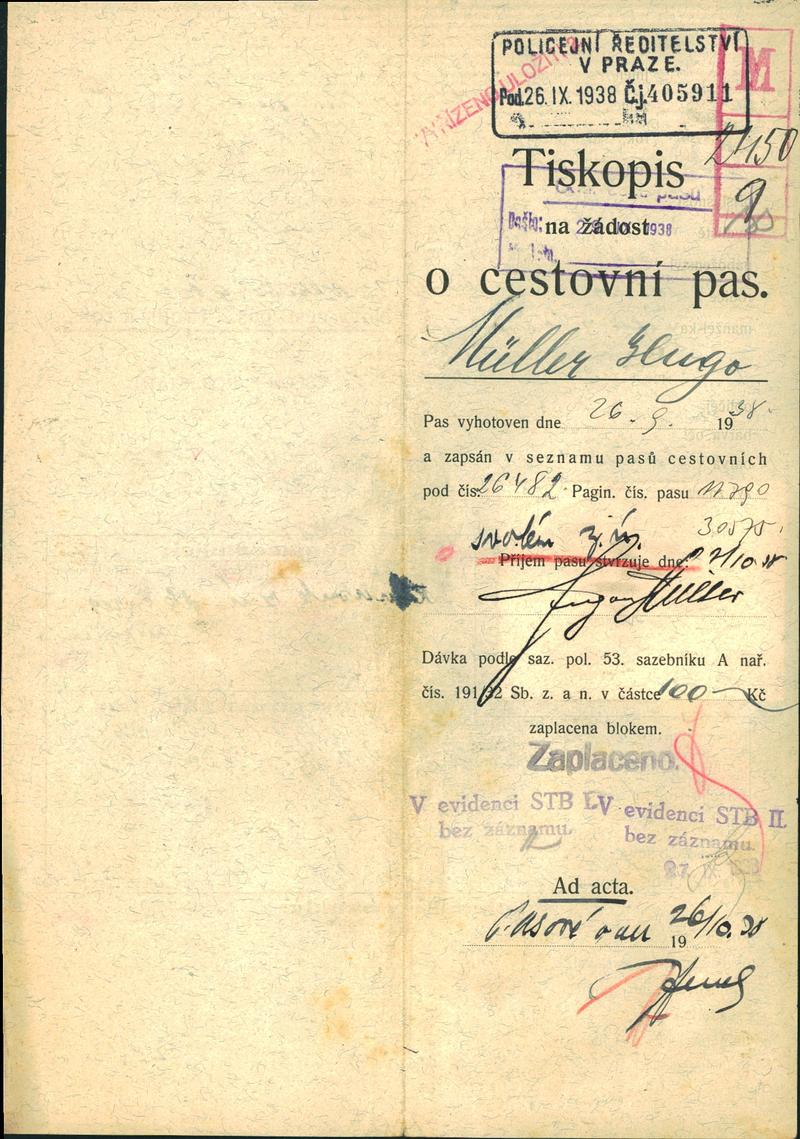 POLICEJNÍ ŘEDITELSTVÍ
V PRAZE.
Pod. 26. IX. 1938 Čj. 405911
VYŘÍZENO ULOŽITI
M
2450
9
Tiskopis
pasů
Došlo: 1938
na žádost
o cestovní pas.
Müller Hugo
Pas vyhotoven dne 26. 9. 1938.
a zapsán v seznamu pasů cestovních
pod čís. 26482. Pagin. čís. pasu 11790
30575.
Příjem pasu stvrzuje dne: 27/10.38
Müller
Dávka podle saz. pol. 53. sazebníku A nař.
čís. 191/32 Sb. z. a n. v částce 100 Kč
zaplacena blokem.
Zaplaceno.
V evidenci STB I.
bez záznamu.
V evidenci STB II.
bez záznamu.
27. IX.
Ad acta.
26/10.38
19